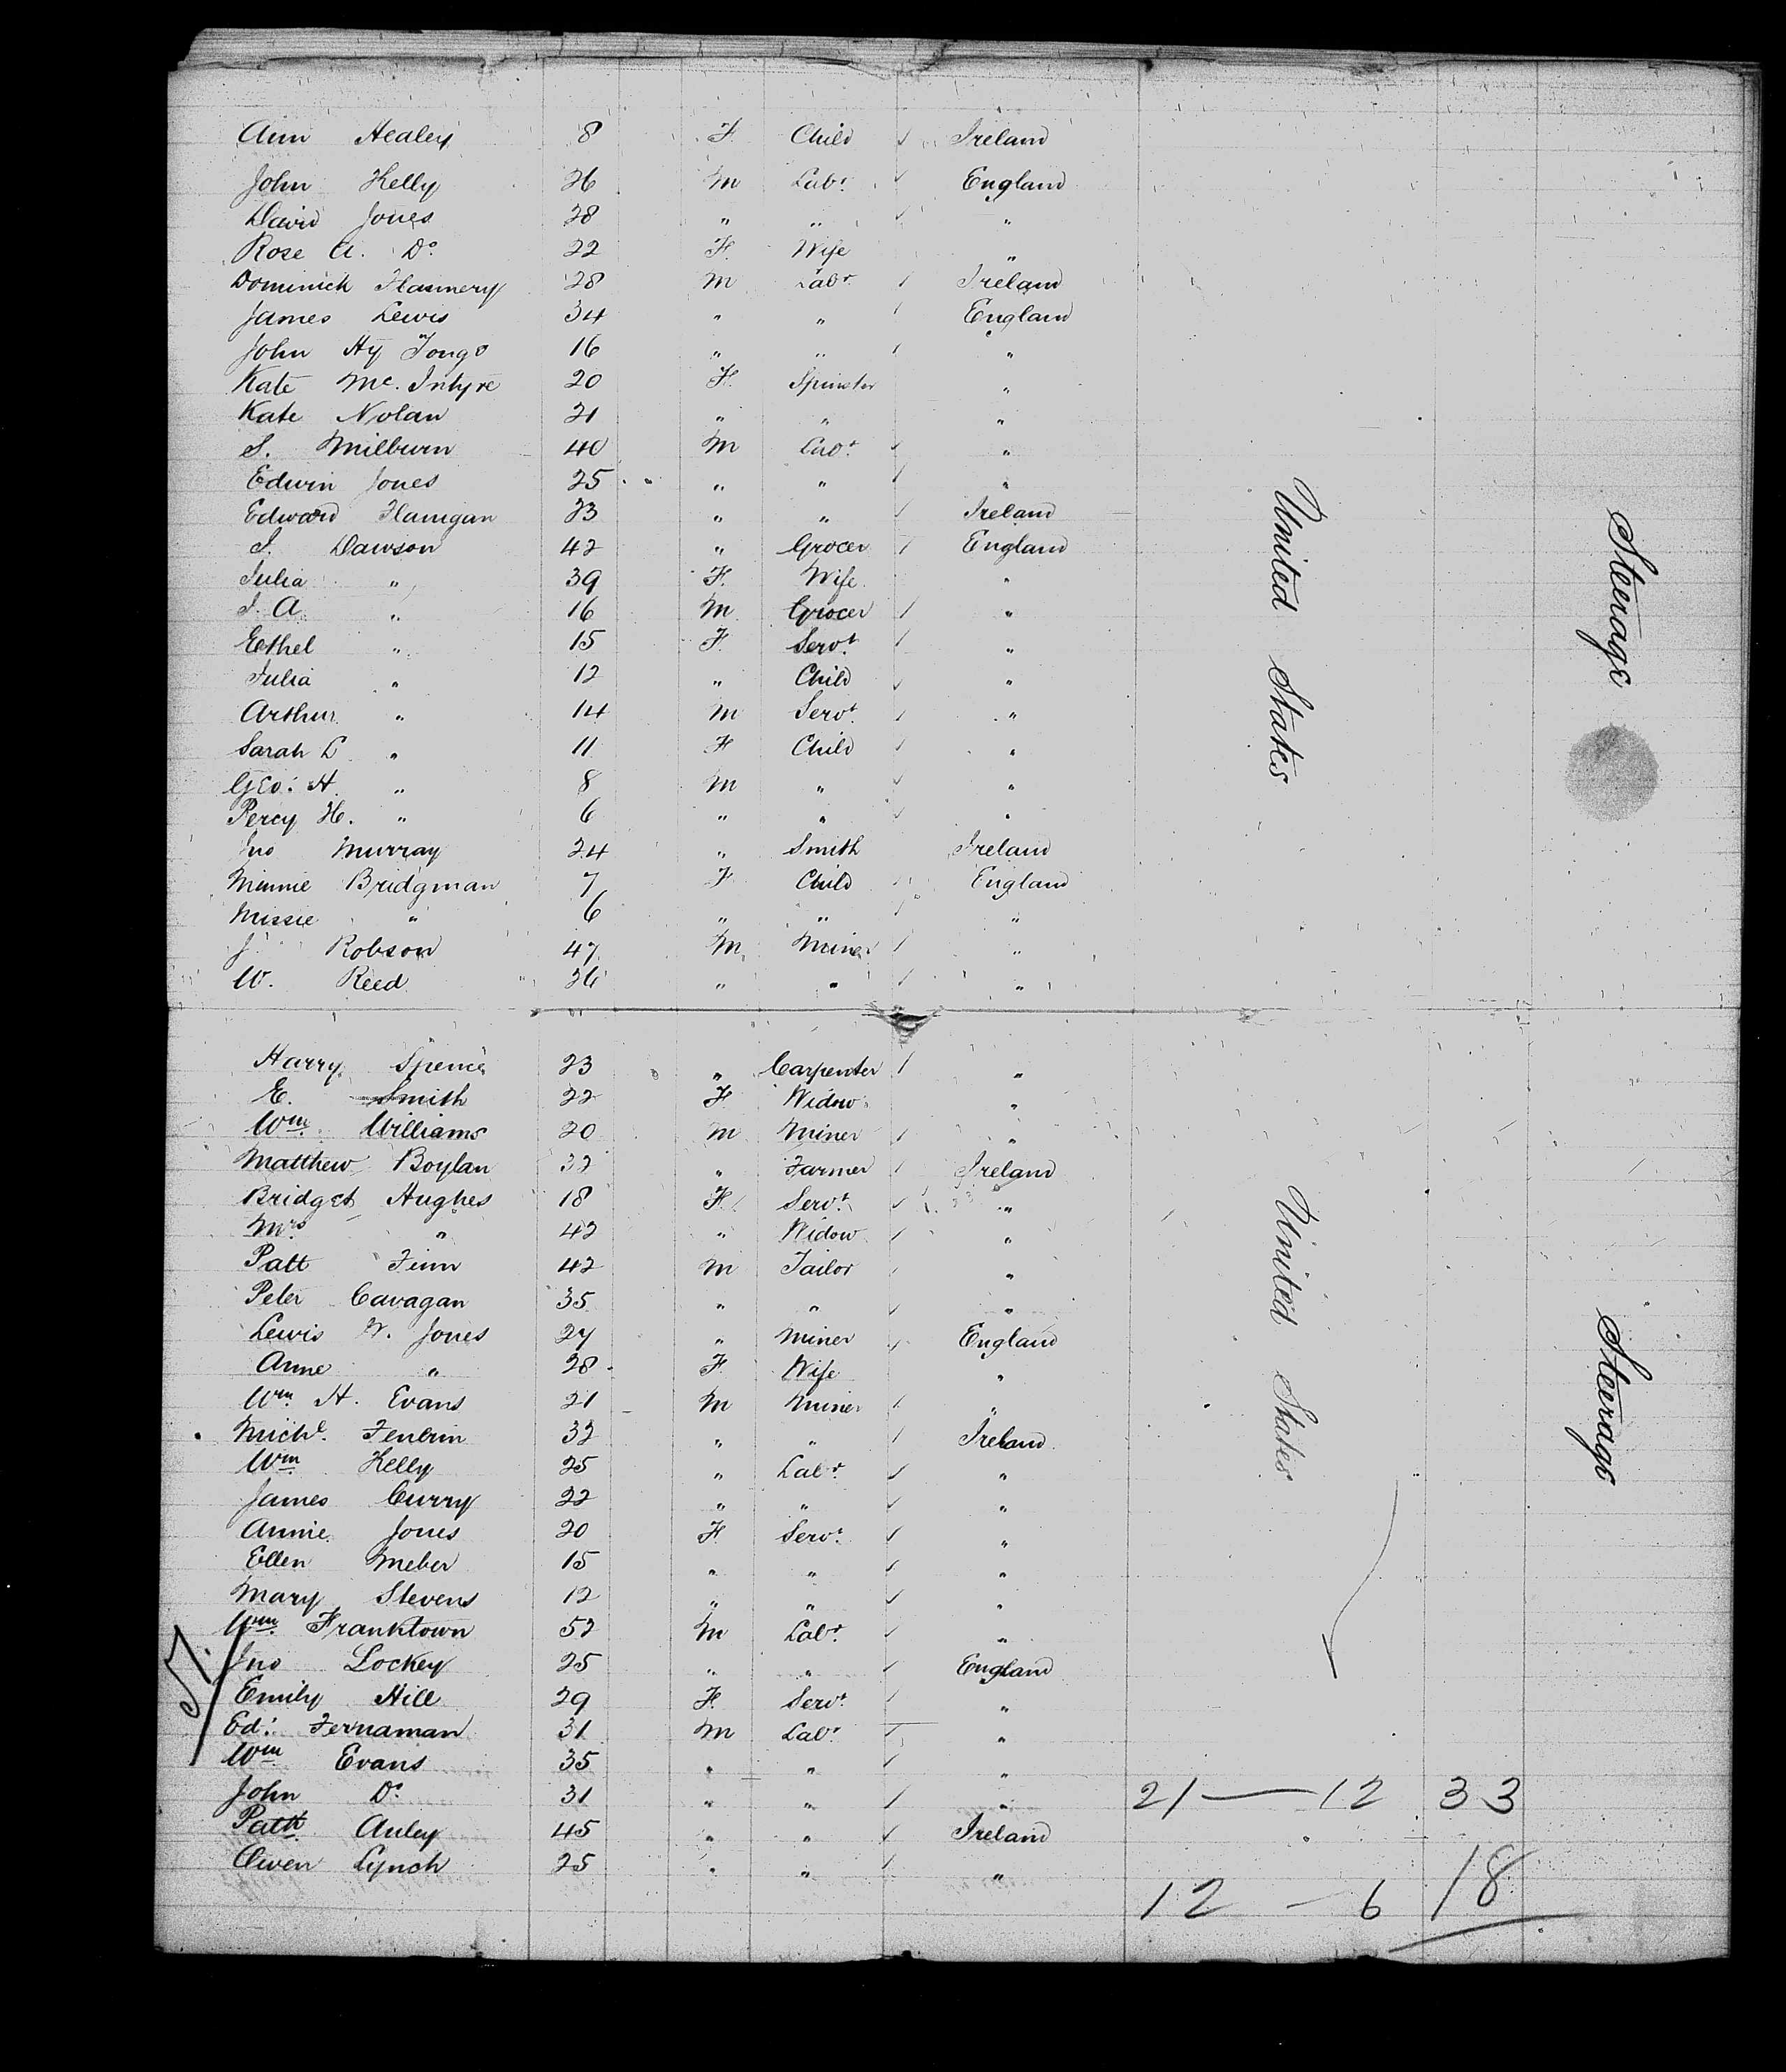 Ann Healey 8 F Child Ireland
John Kelly 26 M Labr. England
David Jones 28 " " "
Rose A. Do. 22 F. Wife "
Dominick Flannery 28 M Labr. Ireland
James Lewis 34 " " England
John Hy Tongs 16 " " "
Kate Mc. Intyre 20 F. Spinster "
Kate Nolan 21 " " "
S. Milburn 40 M Labr. "
Edwin Jones 25 " " "
Edward Flanigan 23 " " Ireland
J. Dawson 42 " Grocer England
Julia " 39 F. Wife "
J. A. " 16 M Grocer "
Eethel " 15 F. Servt. "
Julia " 12 " Child "
Arthur " 14 M Servt. "
Sarah L " 11 F Child "
Geo: H. " 8 M " "
Percy H. " 6 " " "
Jno Murray 24 " Smith Ireland
Minnie Bridgman 7 F Child England
Missie " 6 " " "
J Robson 47 M. Miner "
W. Reed 26 " " "
United States
Steerage
Harry Spence 23 " Carpenter "
E. Smith 22 F Widow "
Wm. Williams 20 M Miner "
Matthew Boylan 32 " Farmer Ireland
Bridget Hughes 18 F. Servt. "
Mrs " 42 " Widow "
Patt Finn 42 M Tailor "
Peter Cavagan 35 " " "
Lewis W. Jones 27 " Miner England
Anne " 28 F. Wife "
Wm. H. Evans 21 M Miner "
Michl. 32 " " Ireland
Wm Kelly 25 " Labr. "
James Curry 22 " " "
Annie Jones 20 F. Servt. "
Ellen Meber 15 " " "
Mary Stevens 12 " " "
Wm. Franktown 52 M Labr. "
Jno Lockey 25 " " England
Emily Hill 29 F. Servt. "
Ed: Fernaman 31 M Labr. "
Wm Evans 35 " " "
John Do. 31 " " "
Patk Auley 45 " " Ireland
Owen Lynch 25 " " "
United States
Steerage
51.
21 — 12 33
12 - 6 18